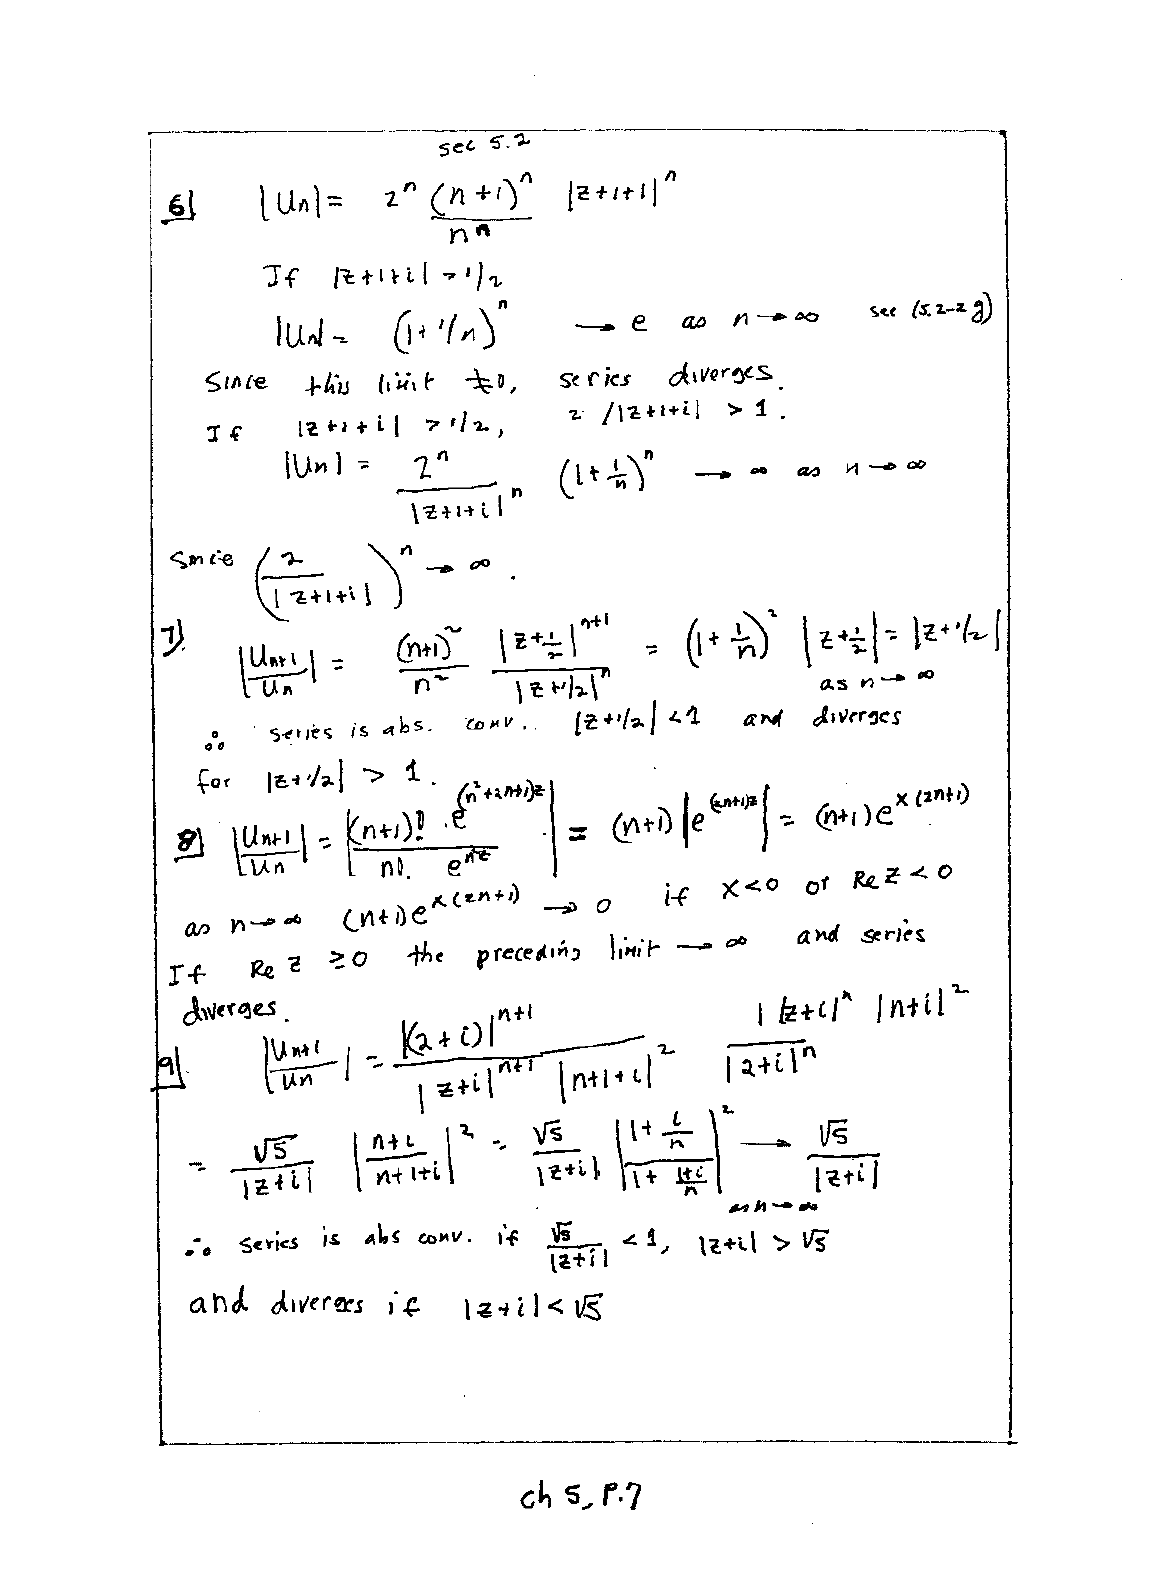 sec 5.2
6] |Un| = 2^n (n+1)^n / n^n |z+1+i|^n
If |z+1+i| = 1/2
|Un| = (1+1/n)^n → e as n→∞ see (5.2-2g)
Since this limit ≠0, series diverges.
If |z+1+i| > 1/2, 2/|z+1+i| > 1.
|Un| = 2^n / |z+1+i|^n (1+1/n)^n → ∞ as n→∞
Since (2/|z+1+i|)^n → ∞.
7]. |Un+1/Un| = (n+1)^2/n^2 |z+1/2|^n+1 / |z+1/2|^n = (1+1/n)^2 |z+1/2| = |z+1/2|
as n→∞
∴ series is abs. conv.. |z+1/2| <1 and diverges
for |z+1/2| > 1.
8] |Un+1/Un| = |(n+1)! e^(n²+2n+1)z / n! e^n²z| = (n+1) |e^(2n+1)z| = (n+1)e^x(2n+1)
as n→∞ (n+1)e^x(2n+1) → 0 if x<0 or Re z < 0
If Re z ≥0 the preceding limit → ∞ and series
diverges.
9] |Un+1/Un| = |(2+i)|^n+1 / |z+i|^n+1 |n+1+i|^2 |z+i|^n |n+i|^2 / |2+i|^n
= √5/|z+i| |n+i / n+1+i|^2 = √5/|z+i| |1+i/n / 1+(1+i)/n|^2 → √5/|z+i|
as n→∞
∴ series is abs conv. if √5/|z+i| < 1, |z+i| > √5
and diverges if |z+i| < √5
ch 5, P.7